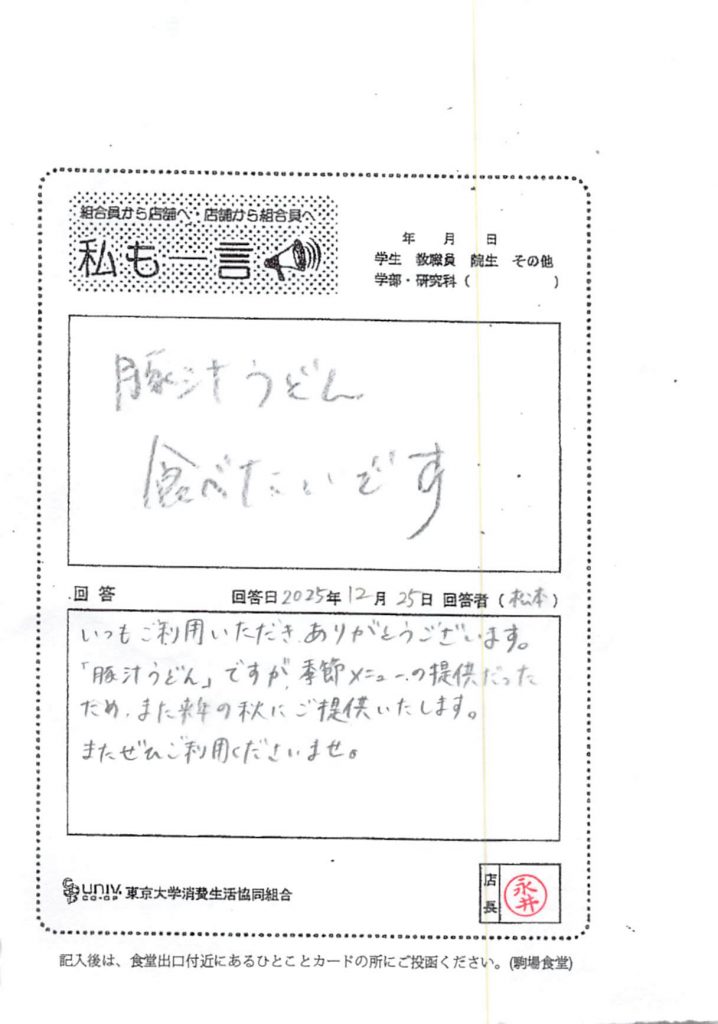 組合員から店舗へ・店舗から組合員へ
私も一言
年 月 日
学生 教職員 院生 その他
学部・研究科（ ）
豚汁うどん
食べたいです
回答 回答日2025年12月25日 回答者（松本）
いつもご利用いただき、ありがとうございます。
「豚汁うどん」ですが、季節メニューの提供だった
ため、また来年の秋にご提供いたします。
またぜひご利用くださいませ。
univ. CO-OP 東京大学消費生活協同組合
店長
永井
記入後は、食堂出口付近にあるひとことカードの所にご投函ください。(駒場食堂)